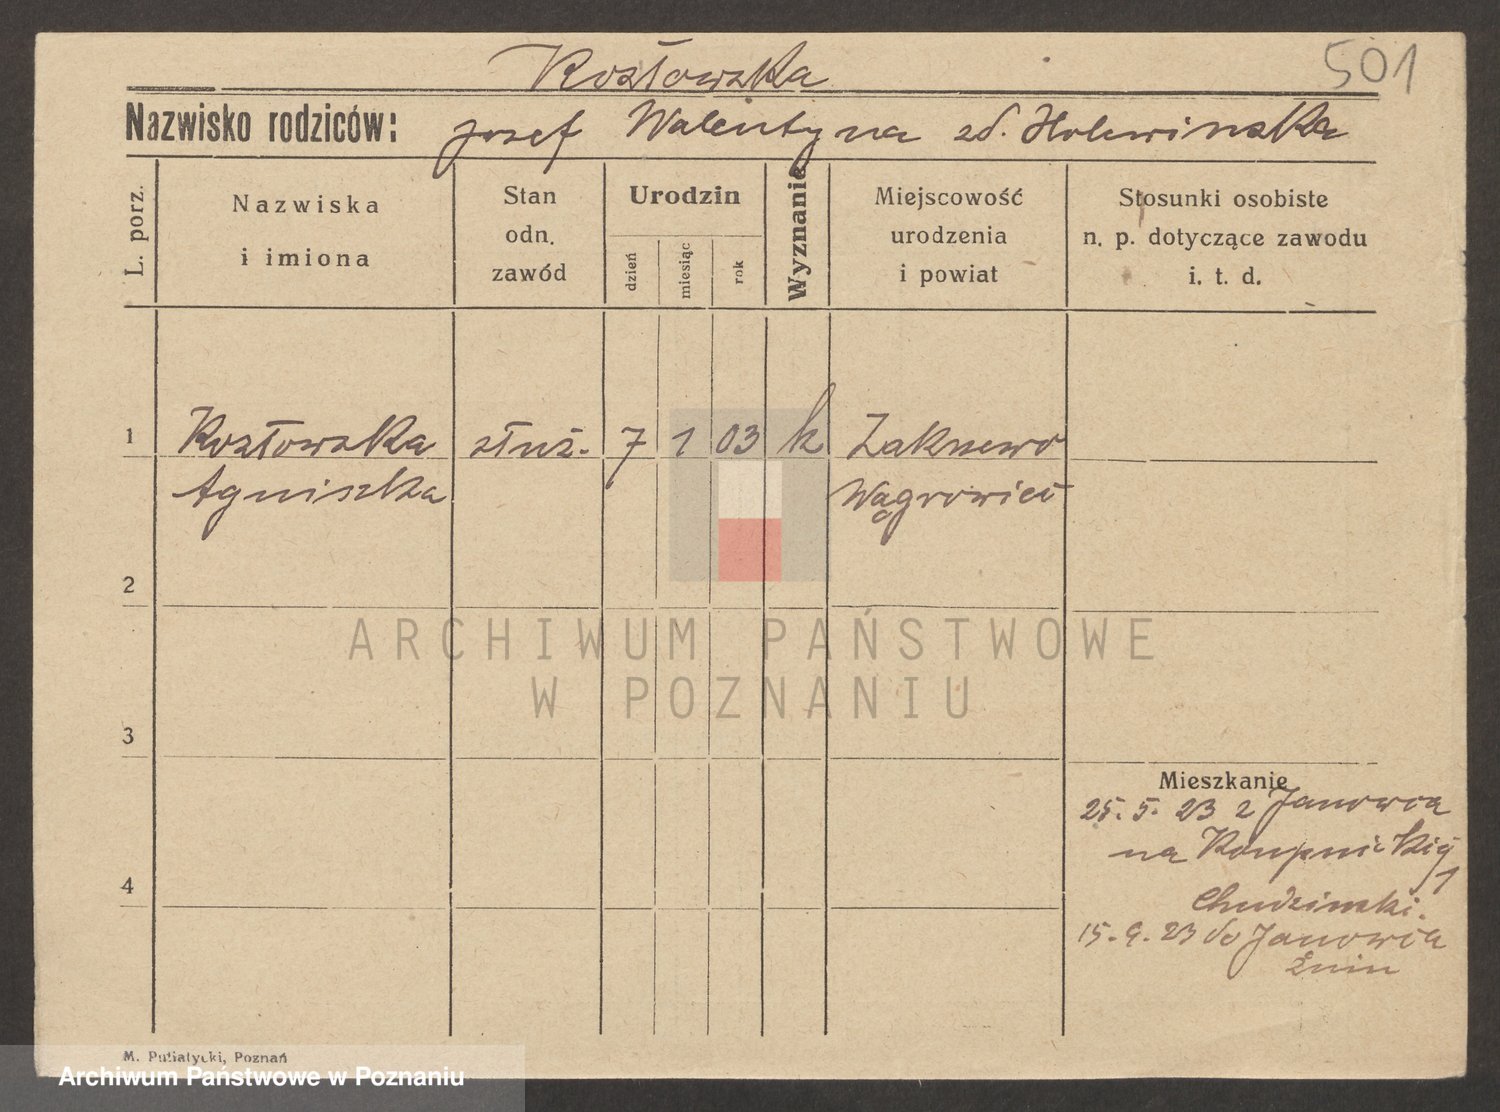 Kozłowska
501
Nazwisko rodziców: Jozef Walentyna zd. Holewinska
L. porz.
Nazwiska
i imiona
Stan
odn.
zawód
Urodzin
dzień
miesiąc
rok
Wyznanie
Miejscowość
urodzenia
i powiat
Stosunki osobiste
n. p. dotyczące zawodu
i. t. d.
1 Kozłowska służ. 7 1 03 k
Agniszka Wągrowiec
2
ARCHIWUM PAŃSTWOWE
W POZNANIU
3
Mieszkanie
25. 5. 23 z Janowca
na
4
1
Chudzinski.
15. 9. 23 do Janowca
Żnin
M. Putiatycki, Poznań
Archiwum Państwowe w Poznaniu